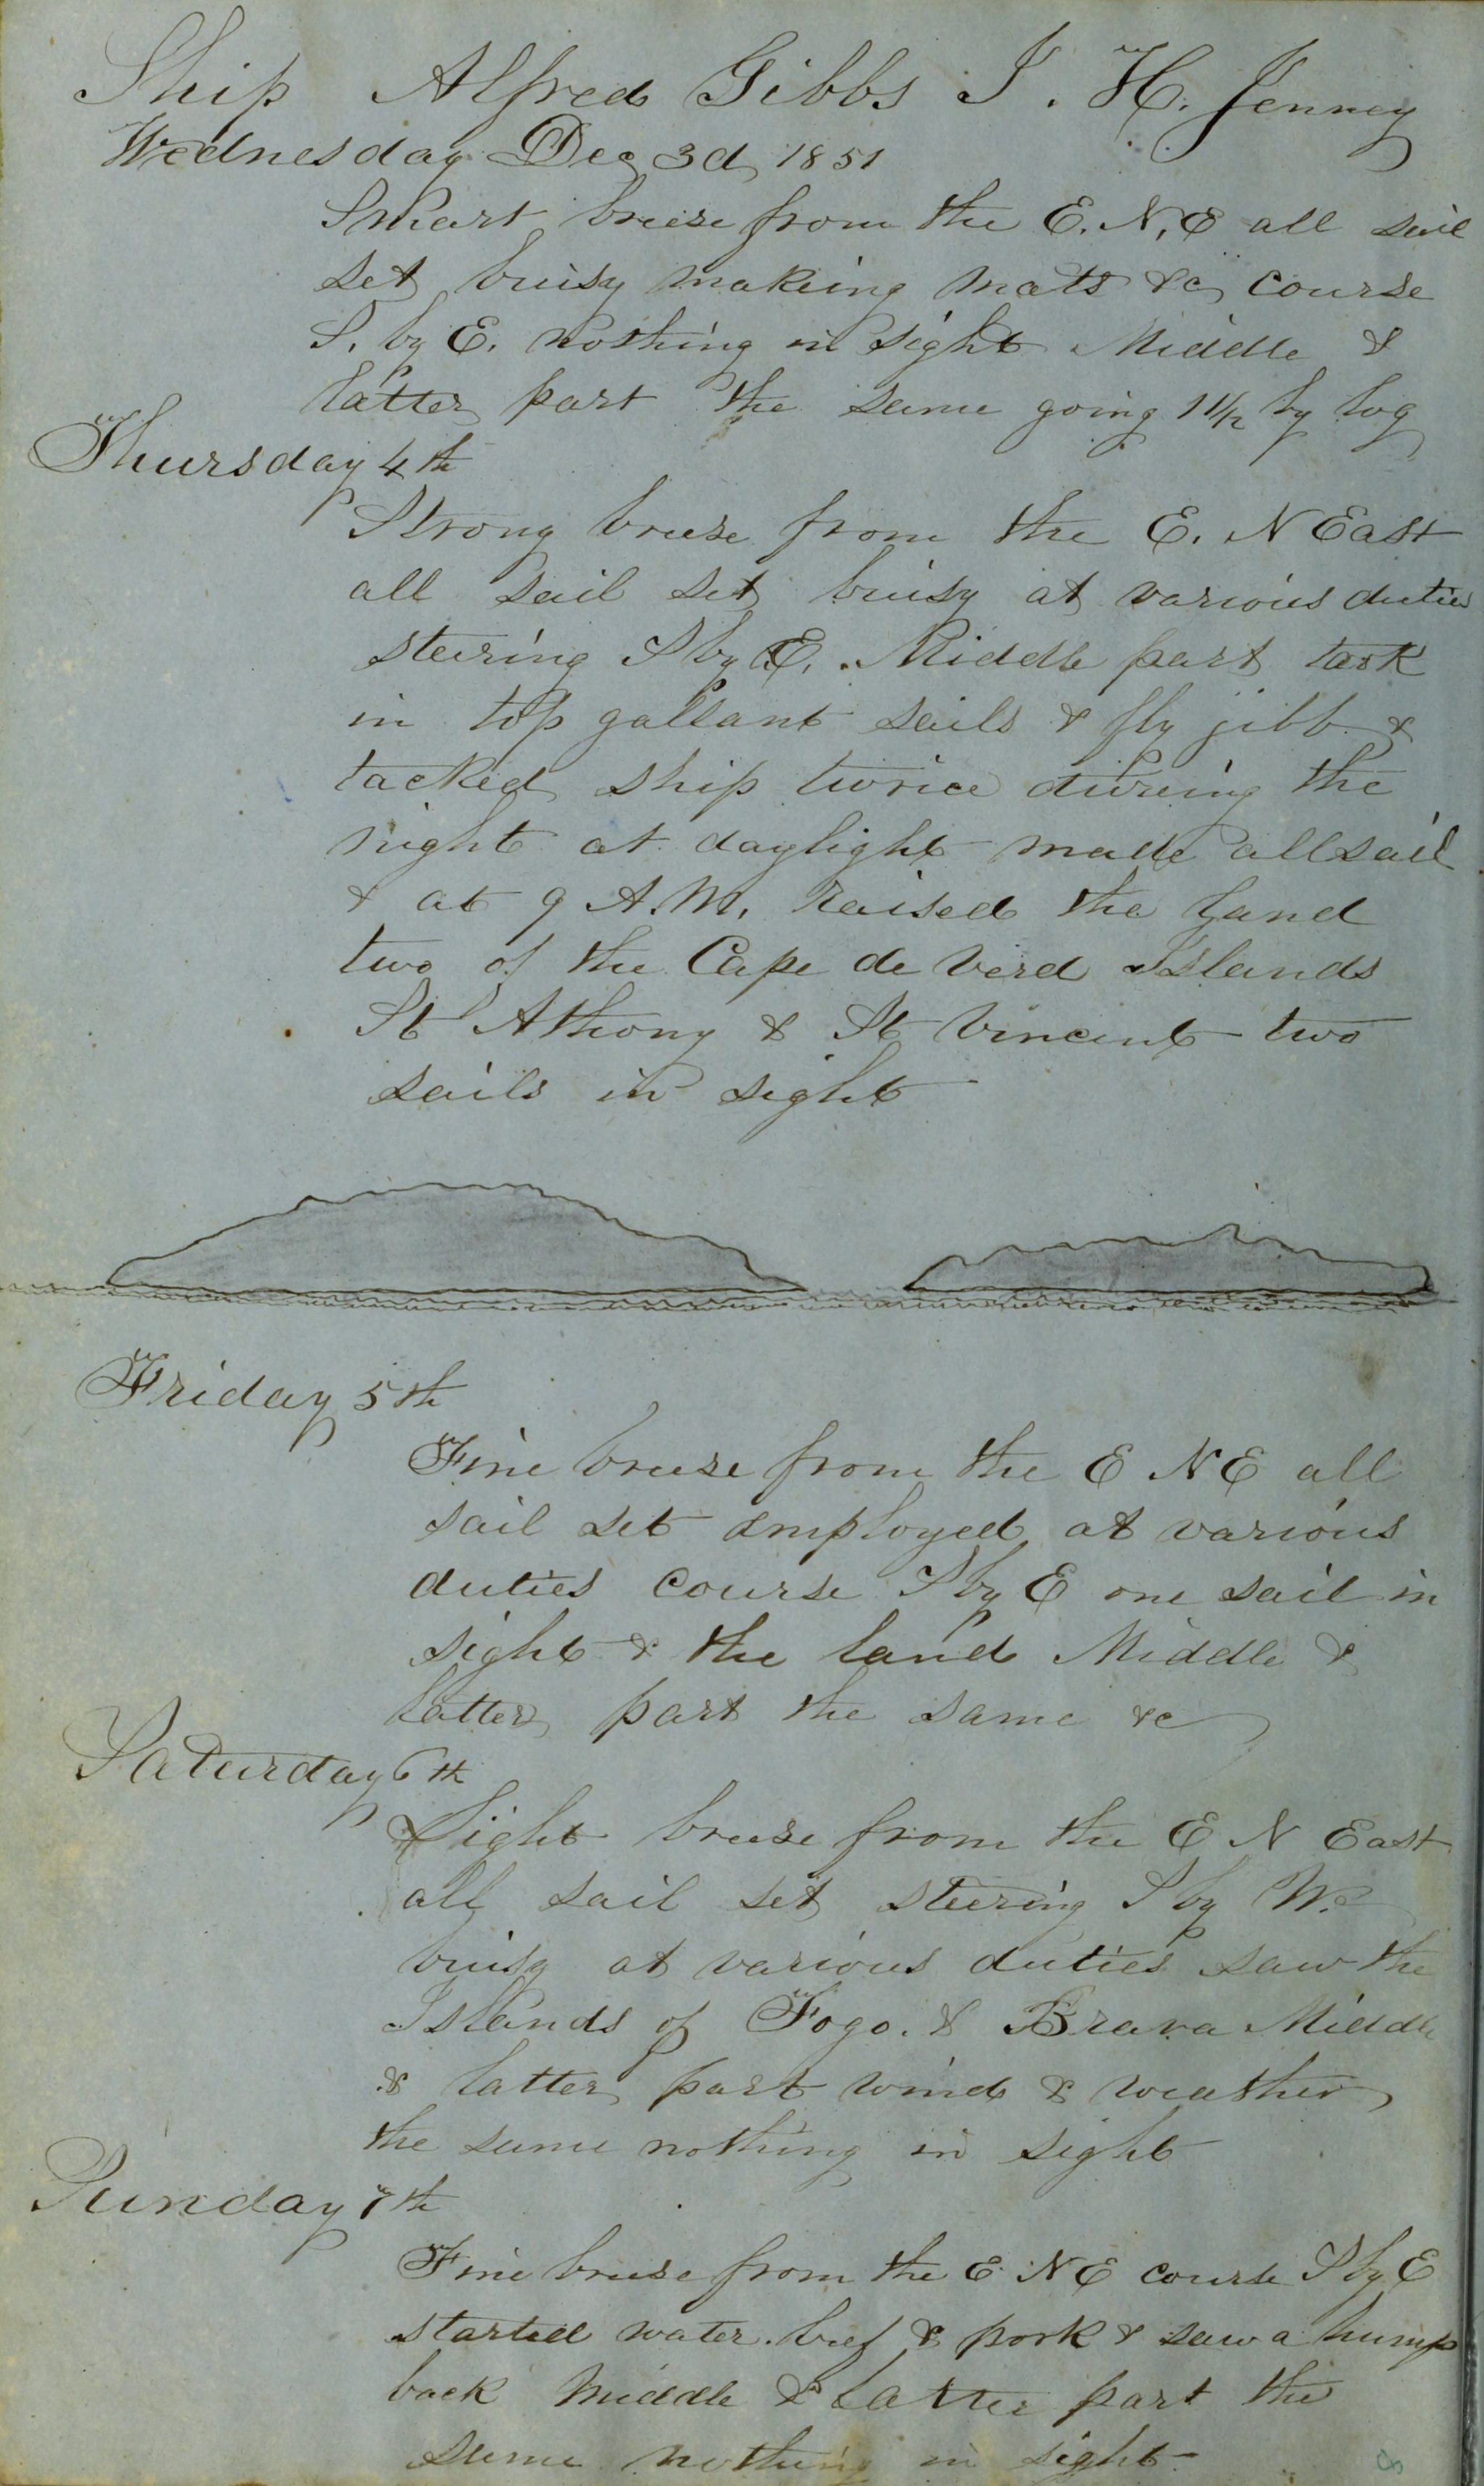 Ship Alfred Gibbs J. H. Jenney
Wednesday Dec 3d 1851
Smart breese from the E. N, E all sail
set buisy making mats &c course
S. by E. nothing in sight Middle &
latter part the same going 11½ by log
Thursday 4th
Strong breese from the E. N East
all sail set buisy at various duties
steering S by E. Middle part took
in top gallant sails & fly jibb &
tacked ship twice during the
night at daylight made all sail
& at 9 A.M. raised the land
two of the Cape de Verd Islands
St Athony & St Vincent two
sails in sight
Friday 5th
Fine breese from the E NE all
sail set employed at various
duties course S by E one sail in
sight & the land Middle &
latter part the same &c
Saturday 6th
Light breese from the E N East
all sail set steering S by W.
buisy at various duties saw the
Islands of Fogo. & Brava Middle
& latter part wind & weather
the same nothing in sight
Sunday 7th
Fine breese from the E NE course S by E
started water. beef & pork & saw a hump
back Middle & Latter part the
same nothing in sight